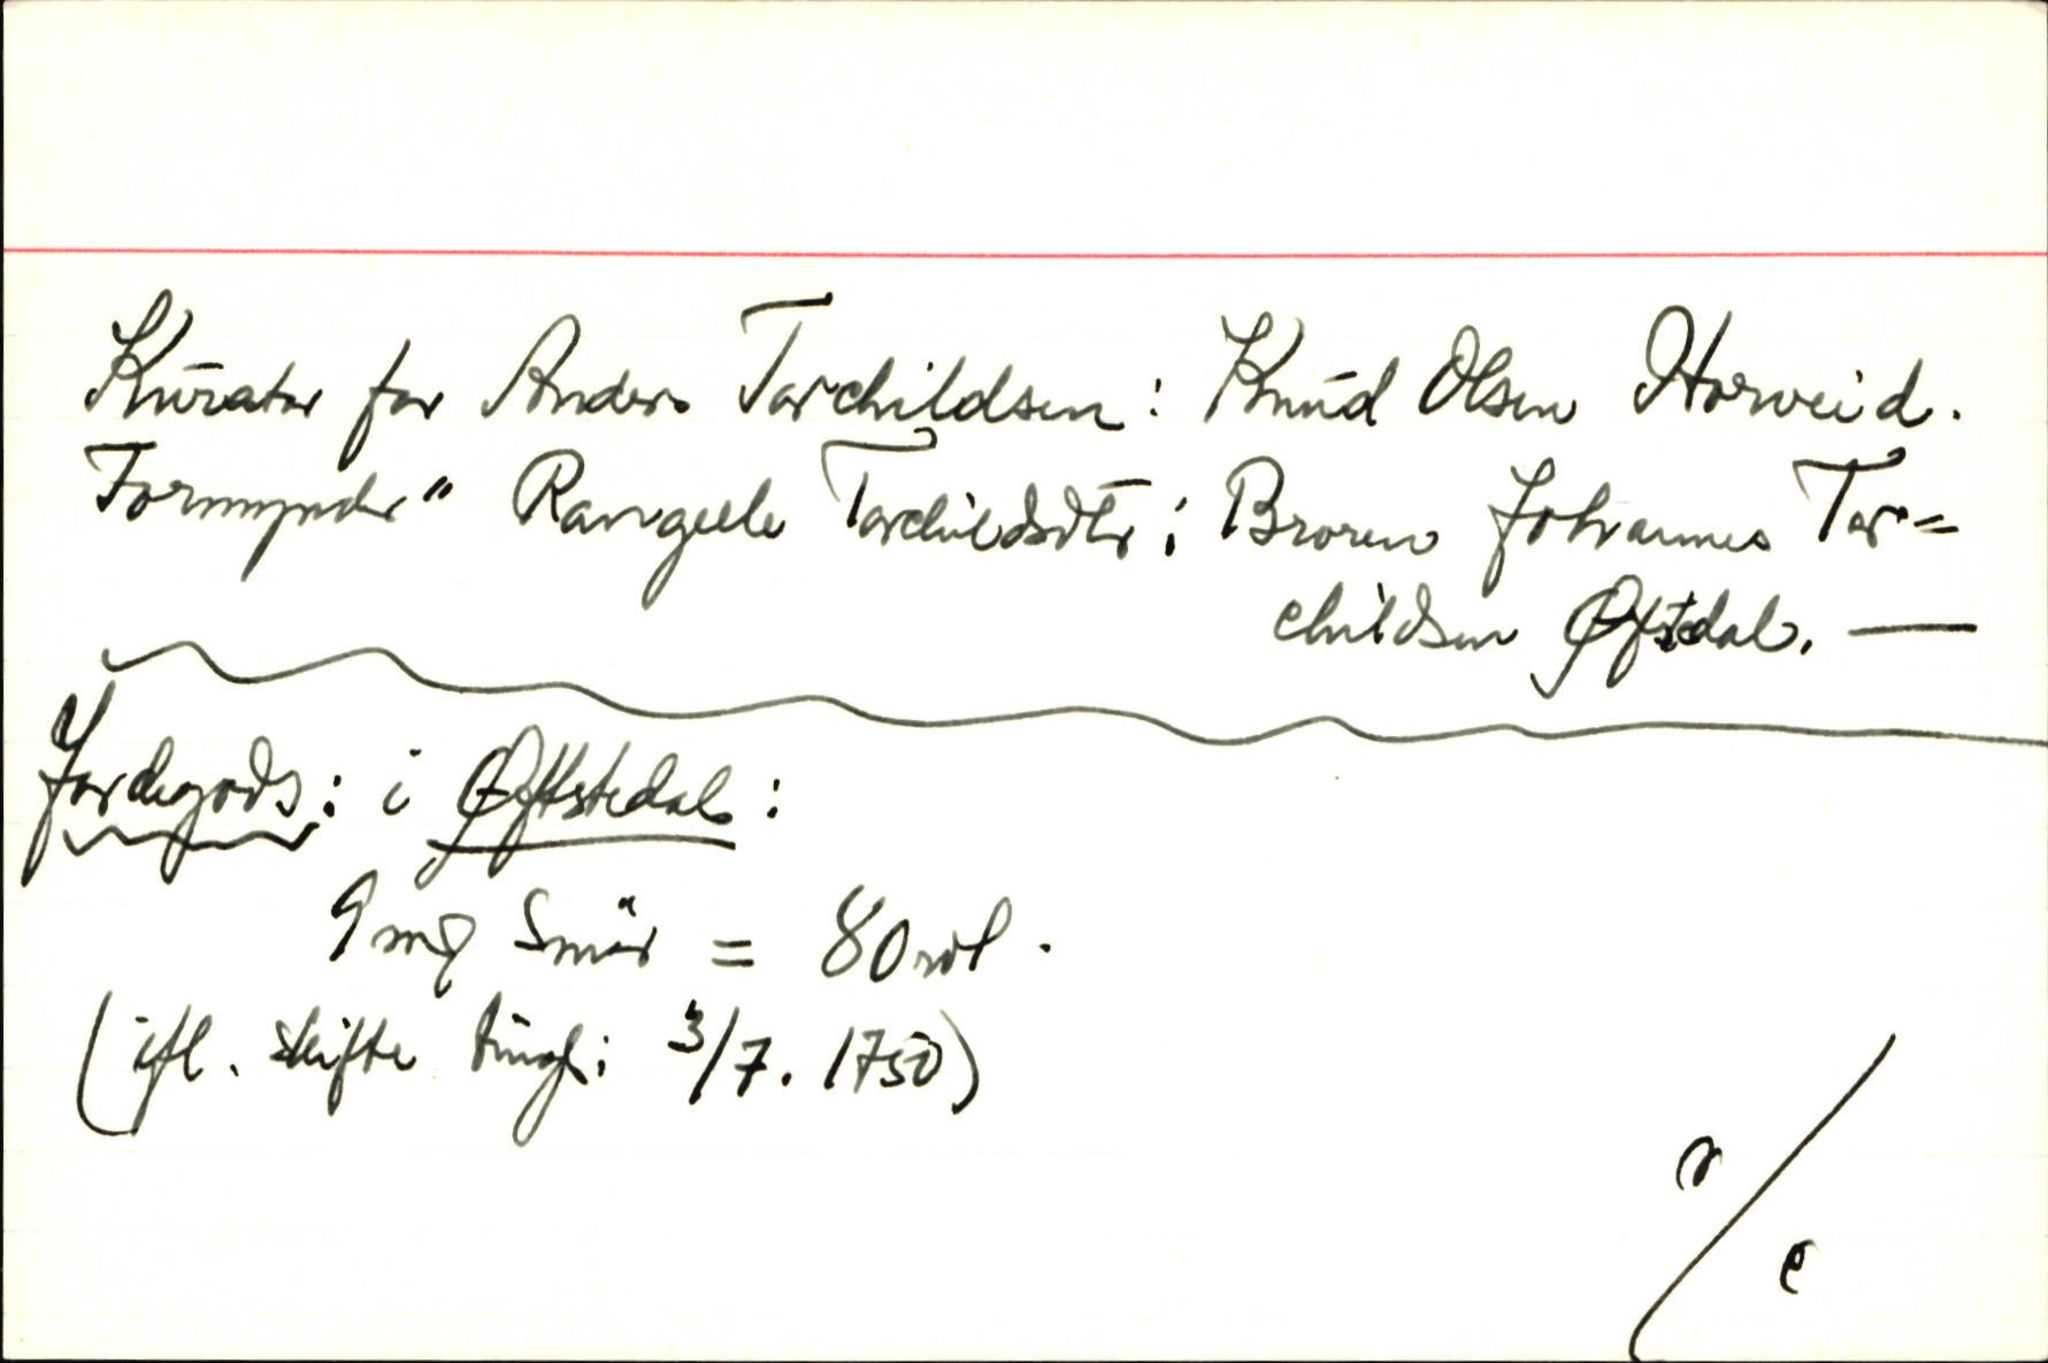 Kurator for Anders Torchildsen: Knud Olsen Horveid.
Formynder " Rangele Torchildsdtr: Broren Johannes Tor=
childsen Øftedal. —
Jordegods: i Øftstedal:
9 mg Smör = 80 rdl.
(ifl. skifte tingl: 3/7. 1750)
r/e